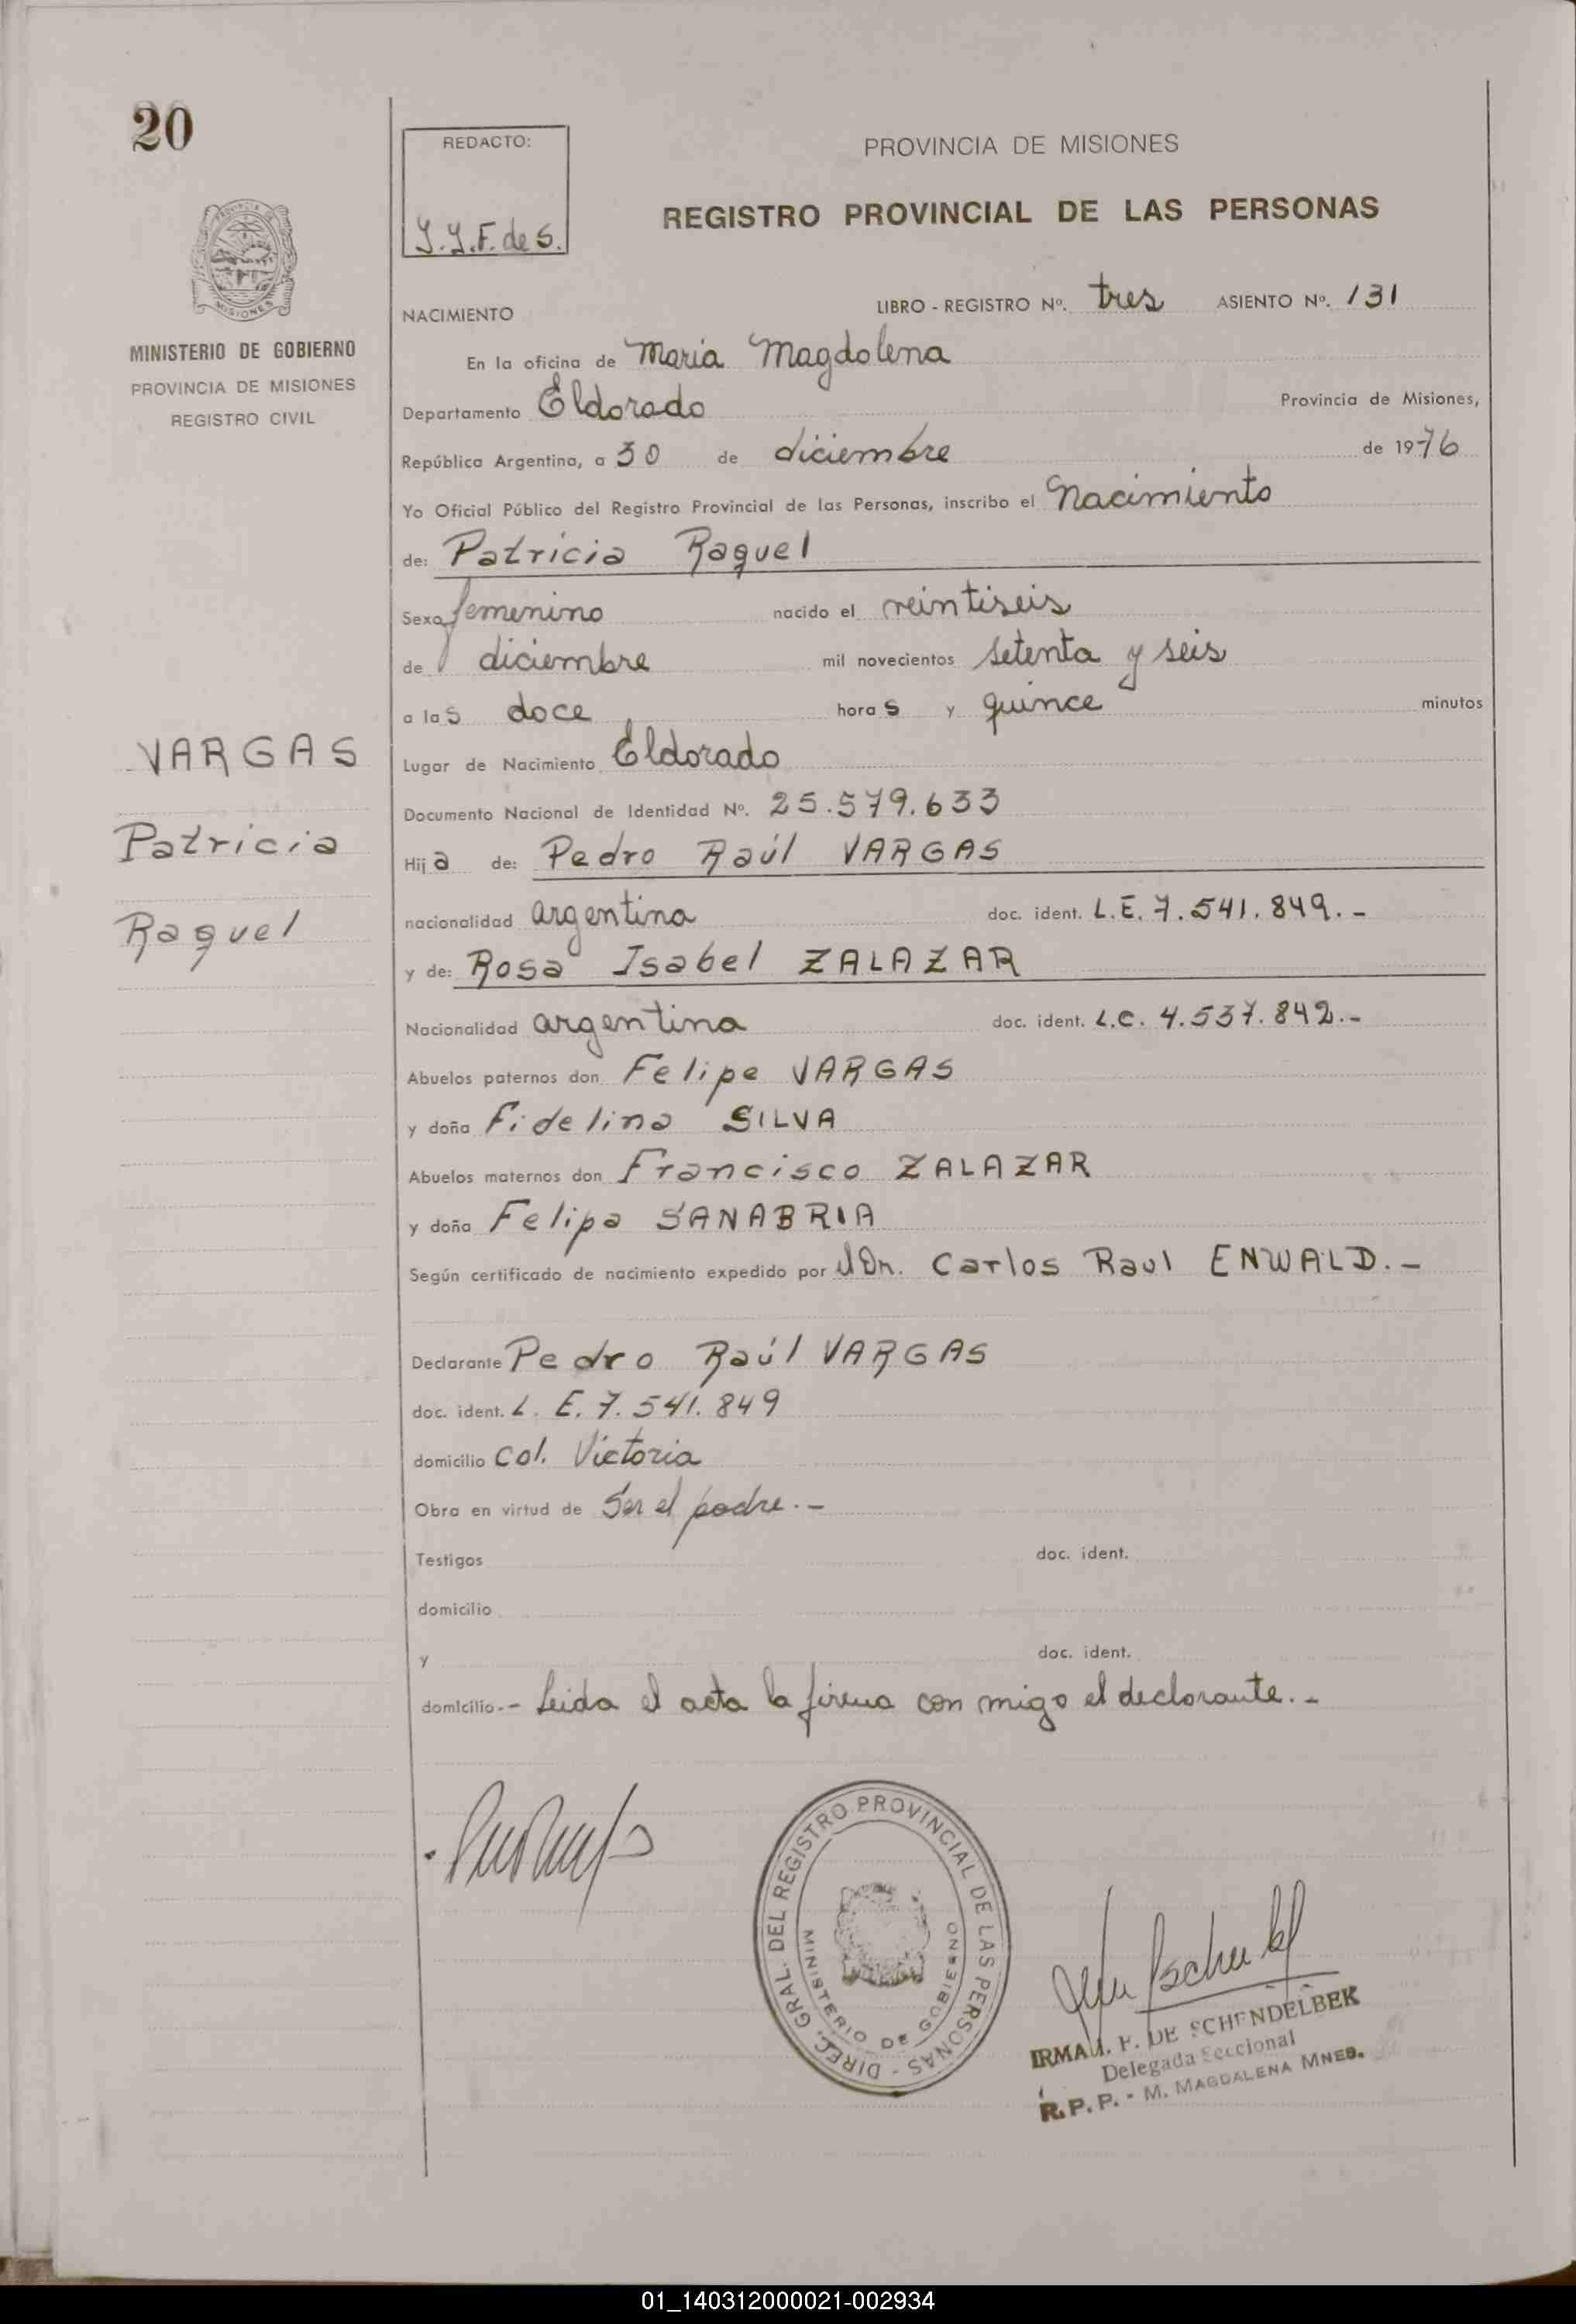 20
REDACTO:
Y.Y.F. de S.
PROVINCIA DE MISIONES
REGISTRO PROVINCIAL DE LAS PERSONAS
PROVINCIA DE
MISIONES
MINISTERIO DE GOBIERNO
PROVINCIA DE MISIONES
REGISTRO CIVIL
NACIMIENTO
LIBRO - REGISTRO Nº. tres ASIENTO Nº. 131
En la oficina de Maria Magdalena
Departamento Eldorado Provincia de Misiones,
República Argentina, a 30 de diciembre de 1976
Yo Oficial Público del Registro Provincial de las Personas, inscribo el Nacimiento
de: Patricia Raquel
Sexo femenino nacido el veintiseis
de diciembre mil novecientos setenta y seis
a las doce horas y quince minutos
Lugar de Nacimiento Eldorado
Documento Nacional de Identidad Nº. 25.579.633
VARGAS
Patricia
Raquel
Hija de: Pedro Raúl VARGAS
nacionalidad argentina doc. ident. L.E. 7.541.849.-
y de: Rosa Isabel ZALAZAR
Nacionalidad argentina doc. ident. L.C. 4.537.842.-
Abuelos paternos don Felipe VARGAS
y doña Fidelina SILVA
Abuelos maternos don Francisco ZALAZAR
y doña Felipa SANABRIA
Según certificado de nacimiento expedido por Dr. Carlos Raul ENWALD.-
Declarante Pedro Raúl VARGAS
doc. ident. L. E. 7. 541. 849
domicilio Col. Victoria
Obra en virtud de Ser el padre.-
Testigos doc. ident.
domicilio
y doc. ident.
domicilio.- Leida el acta la firma con migo el declarante.-
DIREC. GRAL. DEL REGISTRO PROVINCIAL DE LAS PERSONAS -
MINISTERIO DE GOBIERNO
IRMA F. DE SCHENDELBEK
Delegada Seccional
R.P.P. - M. MAGDALENA MNES.
01_140312000021-002934